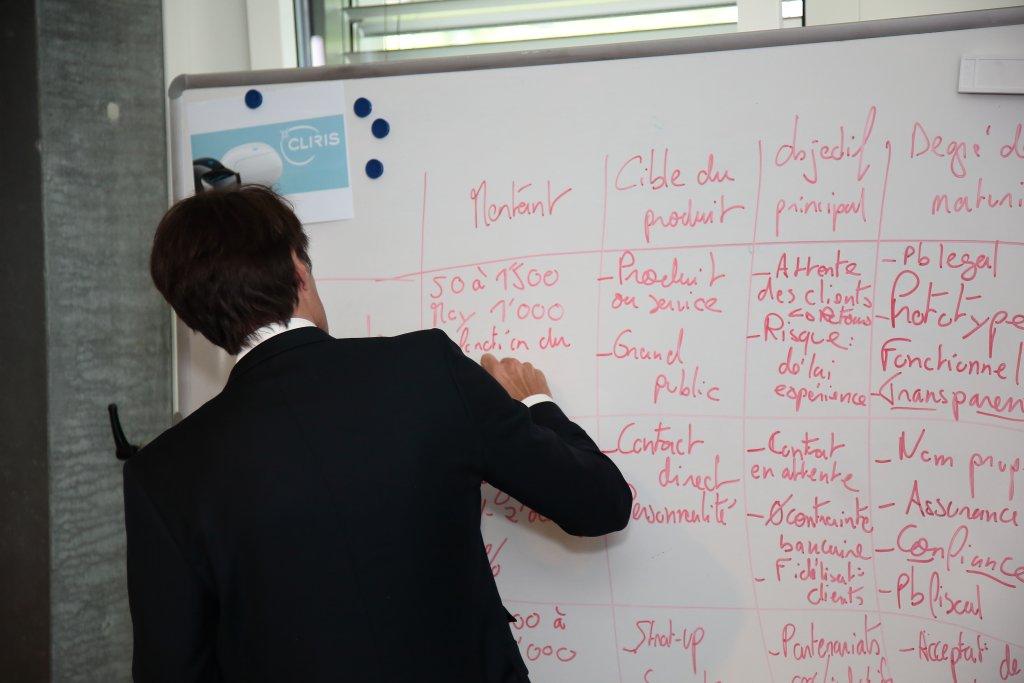 CLIRIS
Montant
Cible du
produit
Objectif
principal
Degré d
maturi
50 à 1500
Moy 1'000
fonction du
-Produit
ou service
-Grand
public
-Attente
des clients
-Risque:
délai
expérience
-Pb legal
Prototype
Fonctionnel
-Transparen
-Contact
direct
Personnalité
-Contrat
en attente
-Øcontrainte
bancaire
-Fidélisat:
clients
-Nom prop
-Assurance
-Confiance
-Pb fiscal
%
00 à
'000
-Start-up
-Partenariats
-Acceptat° de